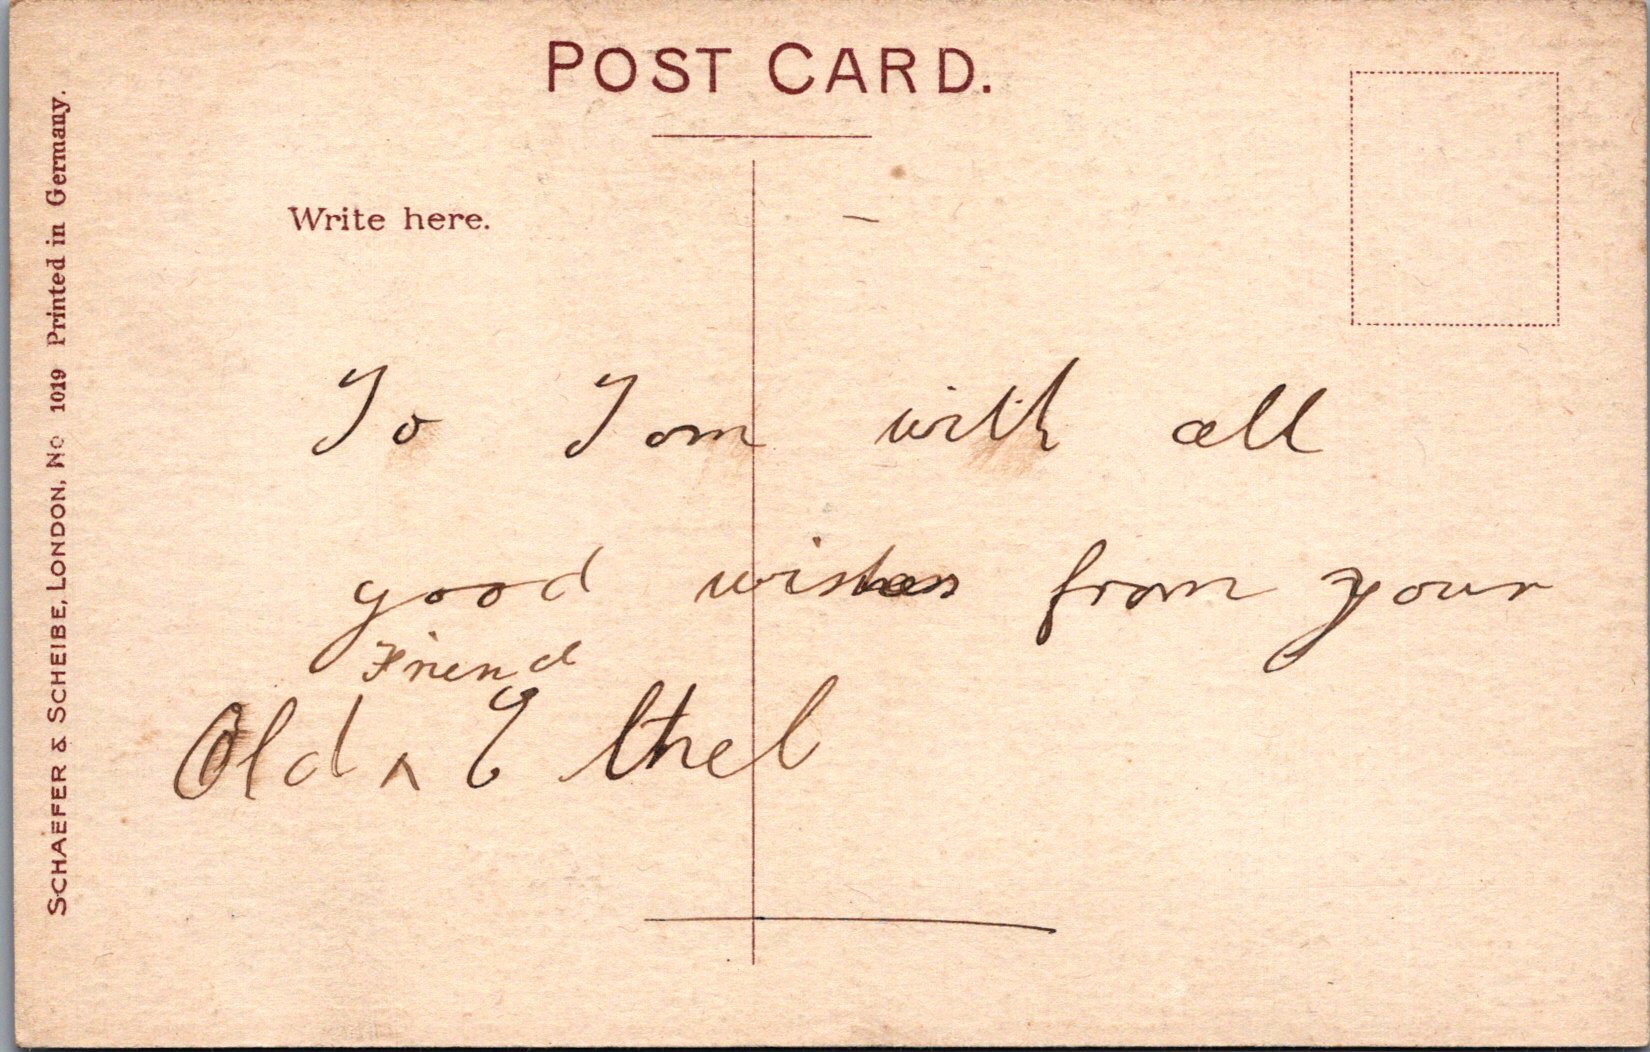 POST CARD.
Write here.
To Tom with all
good wishes from your
Friend
Old ^ Ethel
SCHAEFER & SCHEIBE, LONDON, No 1019 Printed in Germany.